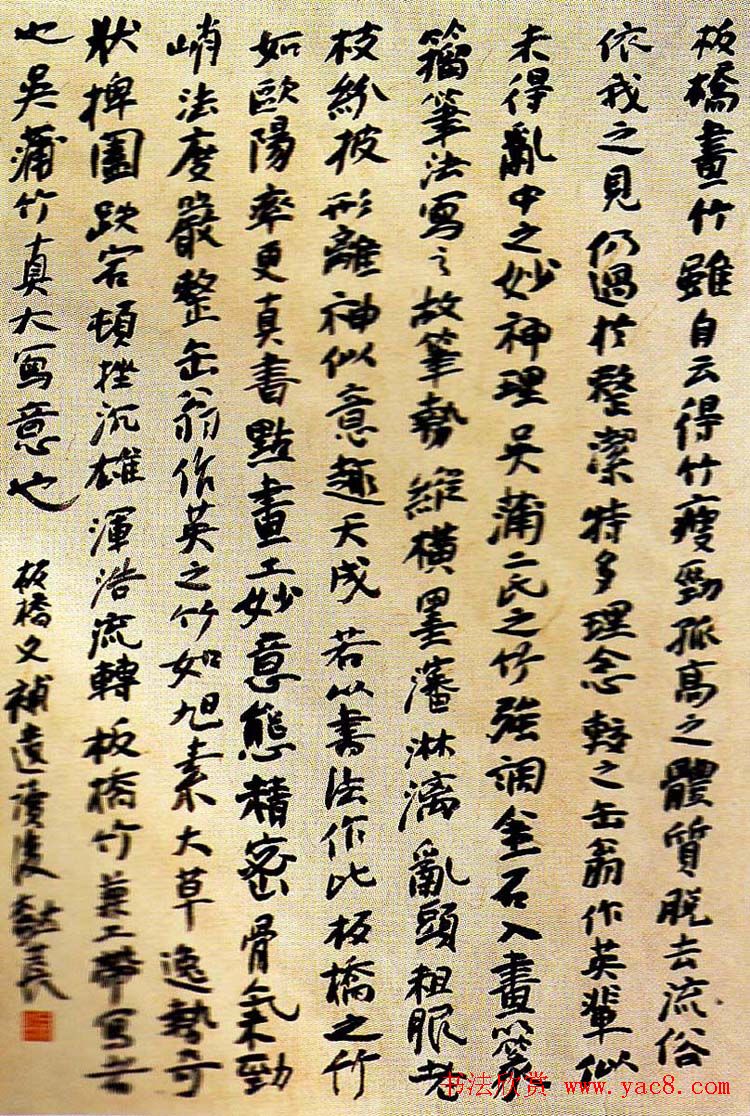 板橋畫竹雖自云得竹瘦勁孤高之體質脫去流俗
依我之見仍過於整潔特多理念較之缶翁作英輩似
未得亂中之妙神理吳蒲二氏之竹強調金石入畫篆
籀筆法寫之故筆勢縱橫墨瀋淋漓亂頭粗服老
枝紛披形離神似意趣天成若以書法作比板橋之竹
如歐陽率更真書點畫工妙意態精密骨氣勁
峭法度嚴整缶翁作英之竹如旭素大草逸勢奇
狀捭闔跌宕頓挫沉雄渾浩流轉板橋竹兼工帶寫者
也吳蒲竹真大寫意也
板橋文補遺讀後
书法欣赏 www.yac8.com